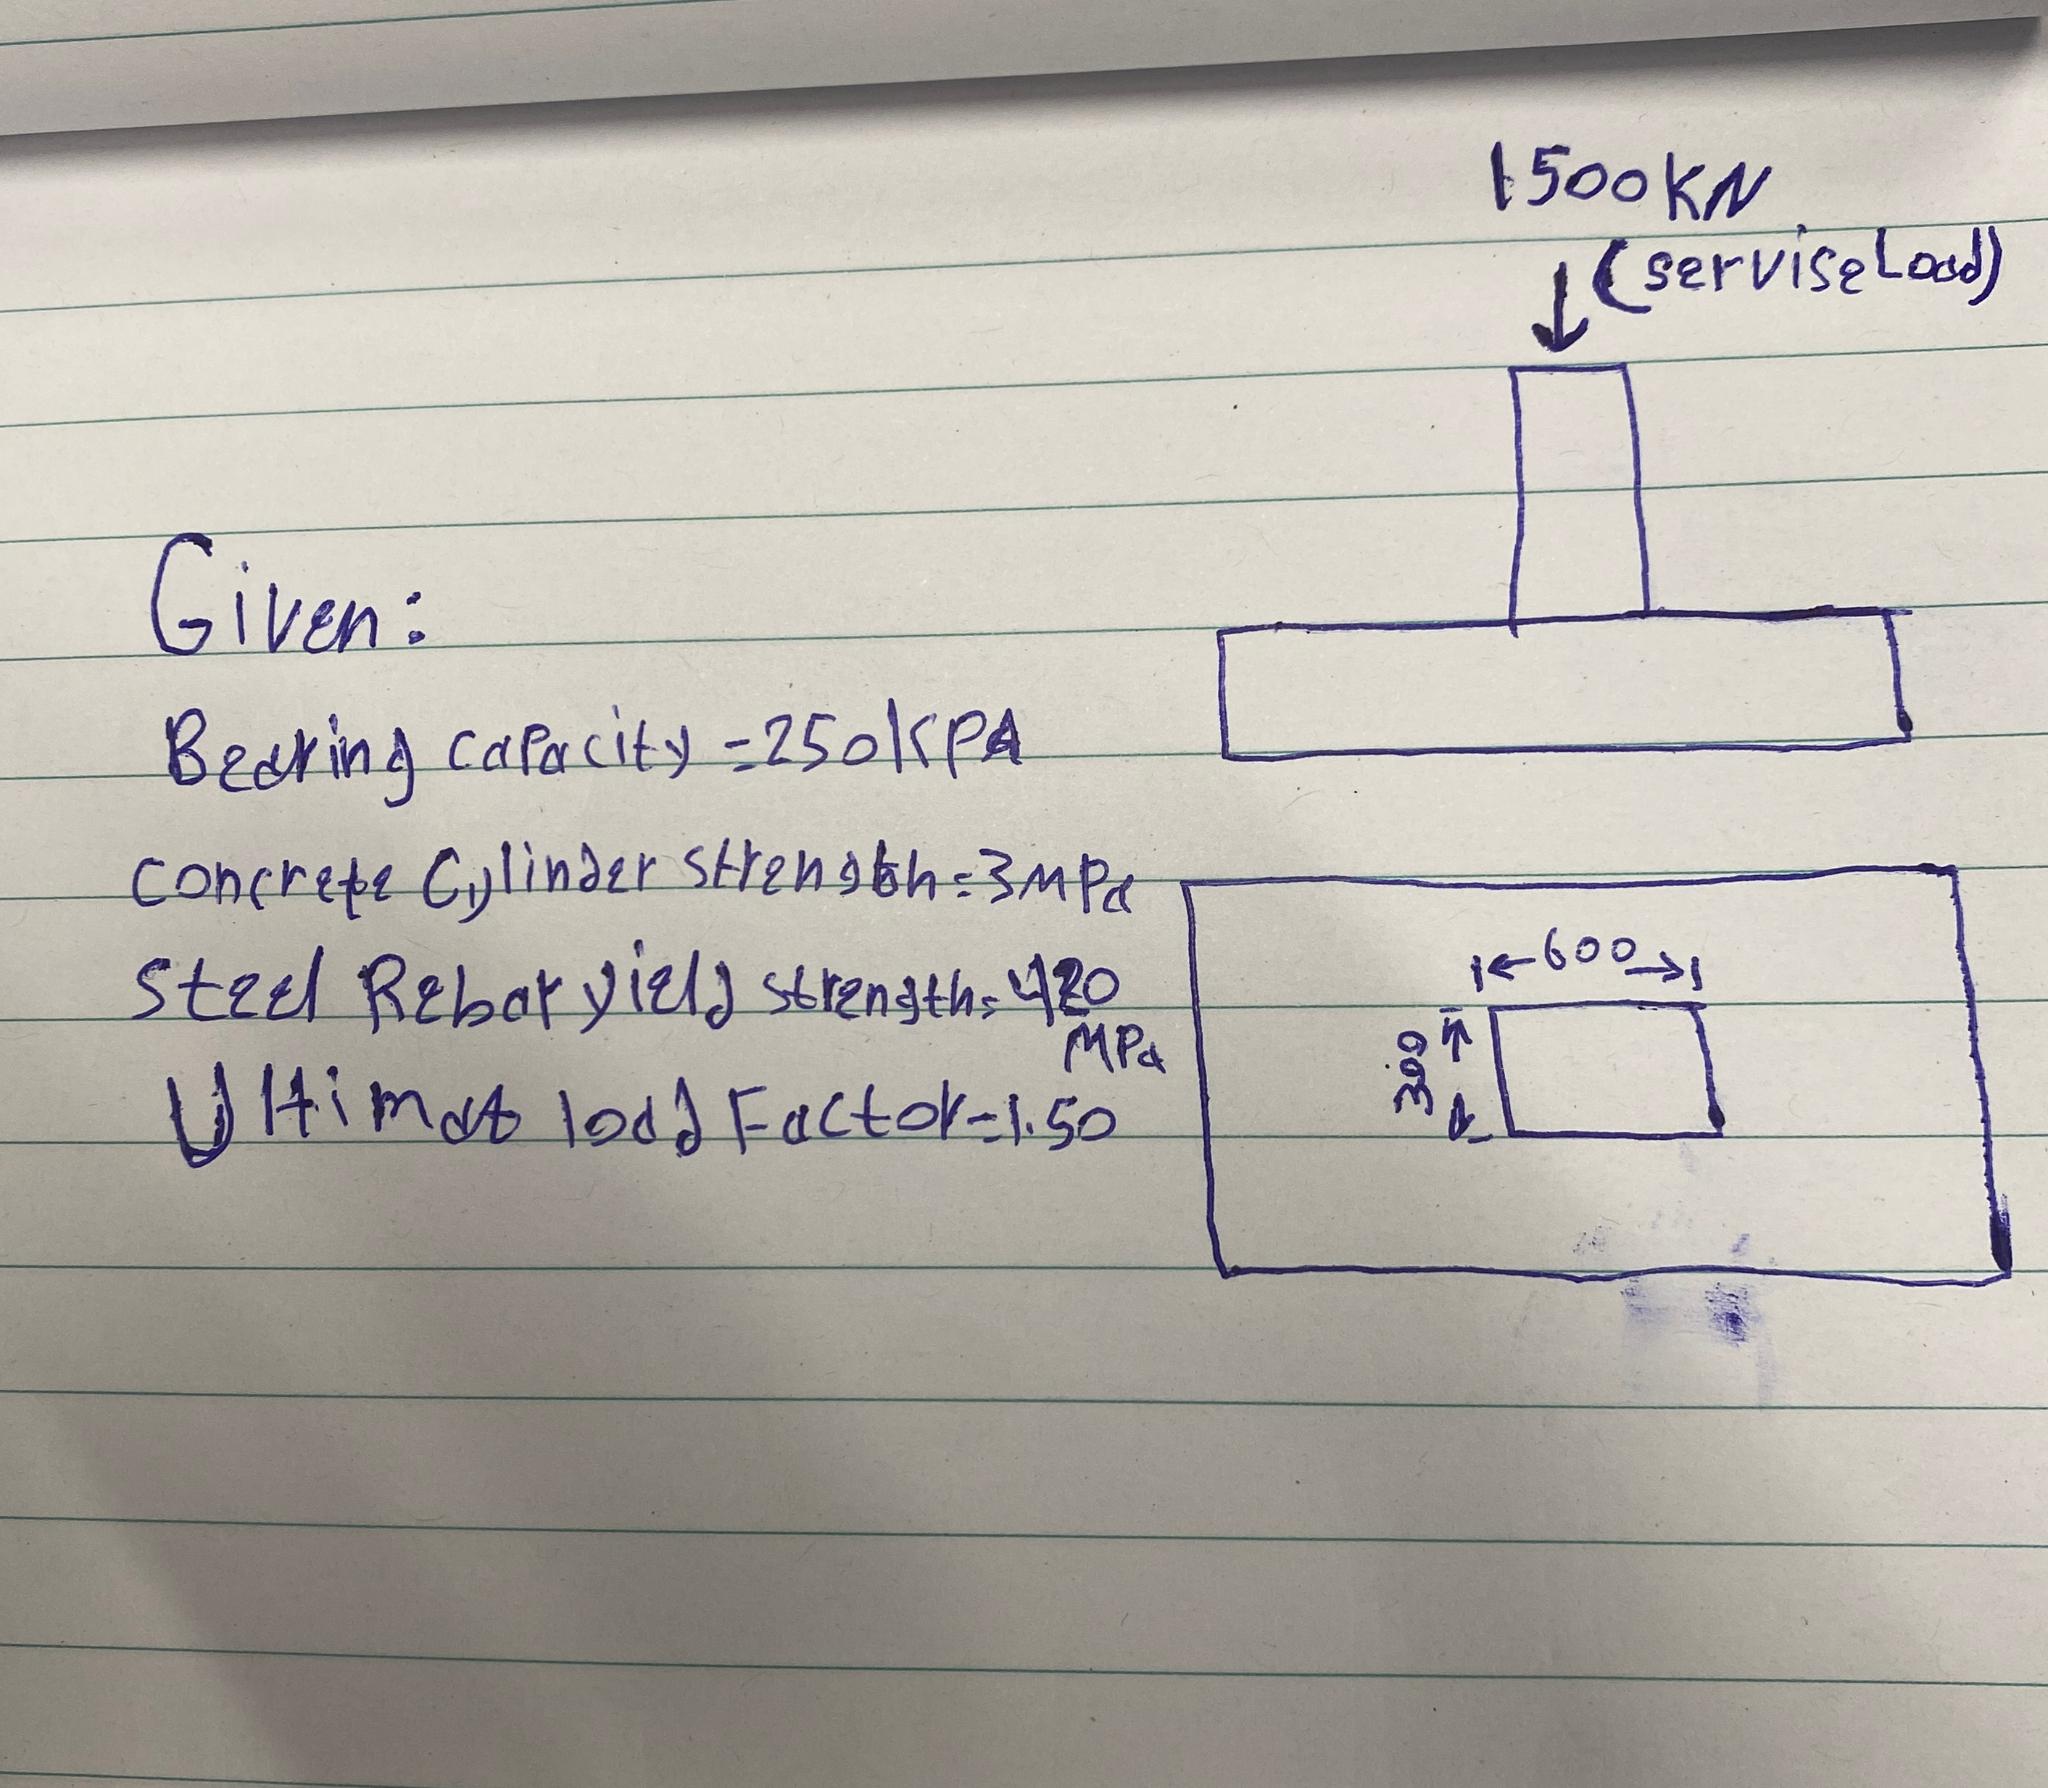 1500KN
(serviseLoad)
Given:
Bearing capacity =250KPA
concrete Cylinder strength=3MPa
Steel Rebar yield strength=420
MPa
Ultimat load Factor=1.50
600
300